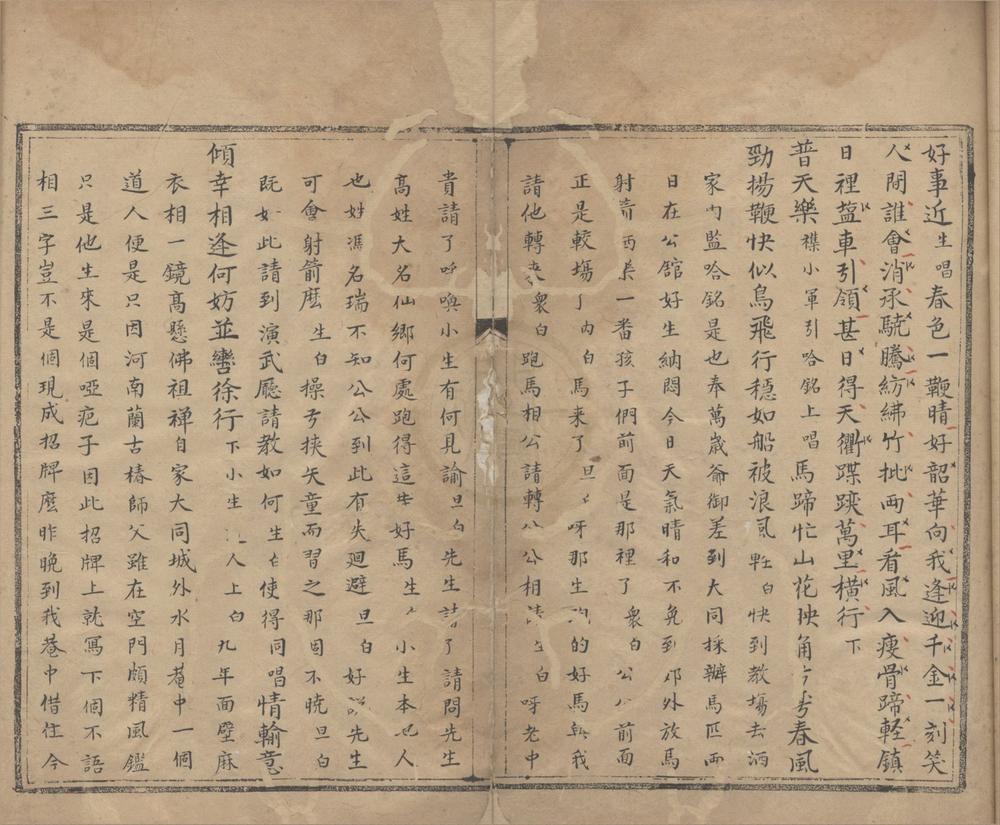 好事近生唱春色一鞭晴好韶華向我逢迎千金一刻笑
人間誰會消承驍騰紡綈竹批两耳看風入瘦骨蹄輕鎮
日裡鹽車引領甚日得天衢蹀躞萬里橫行下
普天樂襍小軍引哈銘上唱馬蹄忙山花㧕角弓芳春風
勁揚鞭快似鳥飛行穏如船被浪風白快到教塲去洒
家内監哈銘是也奉萬歳爺御差到大同採辦馬匹两
日在公舘好生納悶今日天氣晴和不免到郊外放馬
射箭西一番孩子們前面是那裡了衆白公公前面
正是較塲了内白馬来了旦呀那生的好馬我
請他轉来衆白跑馬相公請轉公公相請生白呀老中
貴請了呼喚小生有何見諭旦白先生請了請問先生
高姓大名仙鄉何處跑得這好馬生小生本人
也姓馮名瑞不知公公到此有失廻避旦白好説先生
可會射箭麽生白操弓挟矢童而習之那固不曉旦白
既如此請到演武廳請教如何生白使得同唱情輸意
傾幸相逢何妨並轡徐行下小生人上白九年面壁麻
衣相一鏡高懸佛祖禅自家大同城外水月菴中一個
道人便是只因河南蘭古椿師父雖在空門頗精風鑑
只是他生來是個啞疤子因此招牌上就寫下個不語
相三字豈不是個現成招牌麽昨晚到我菴中借住今